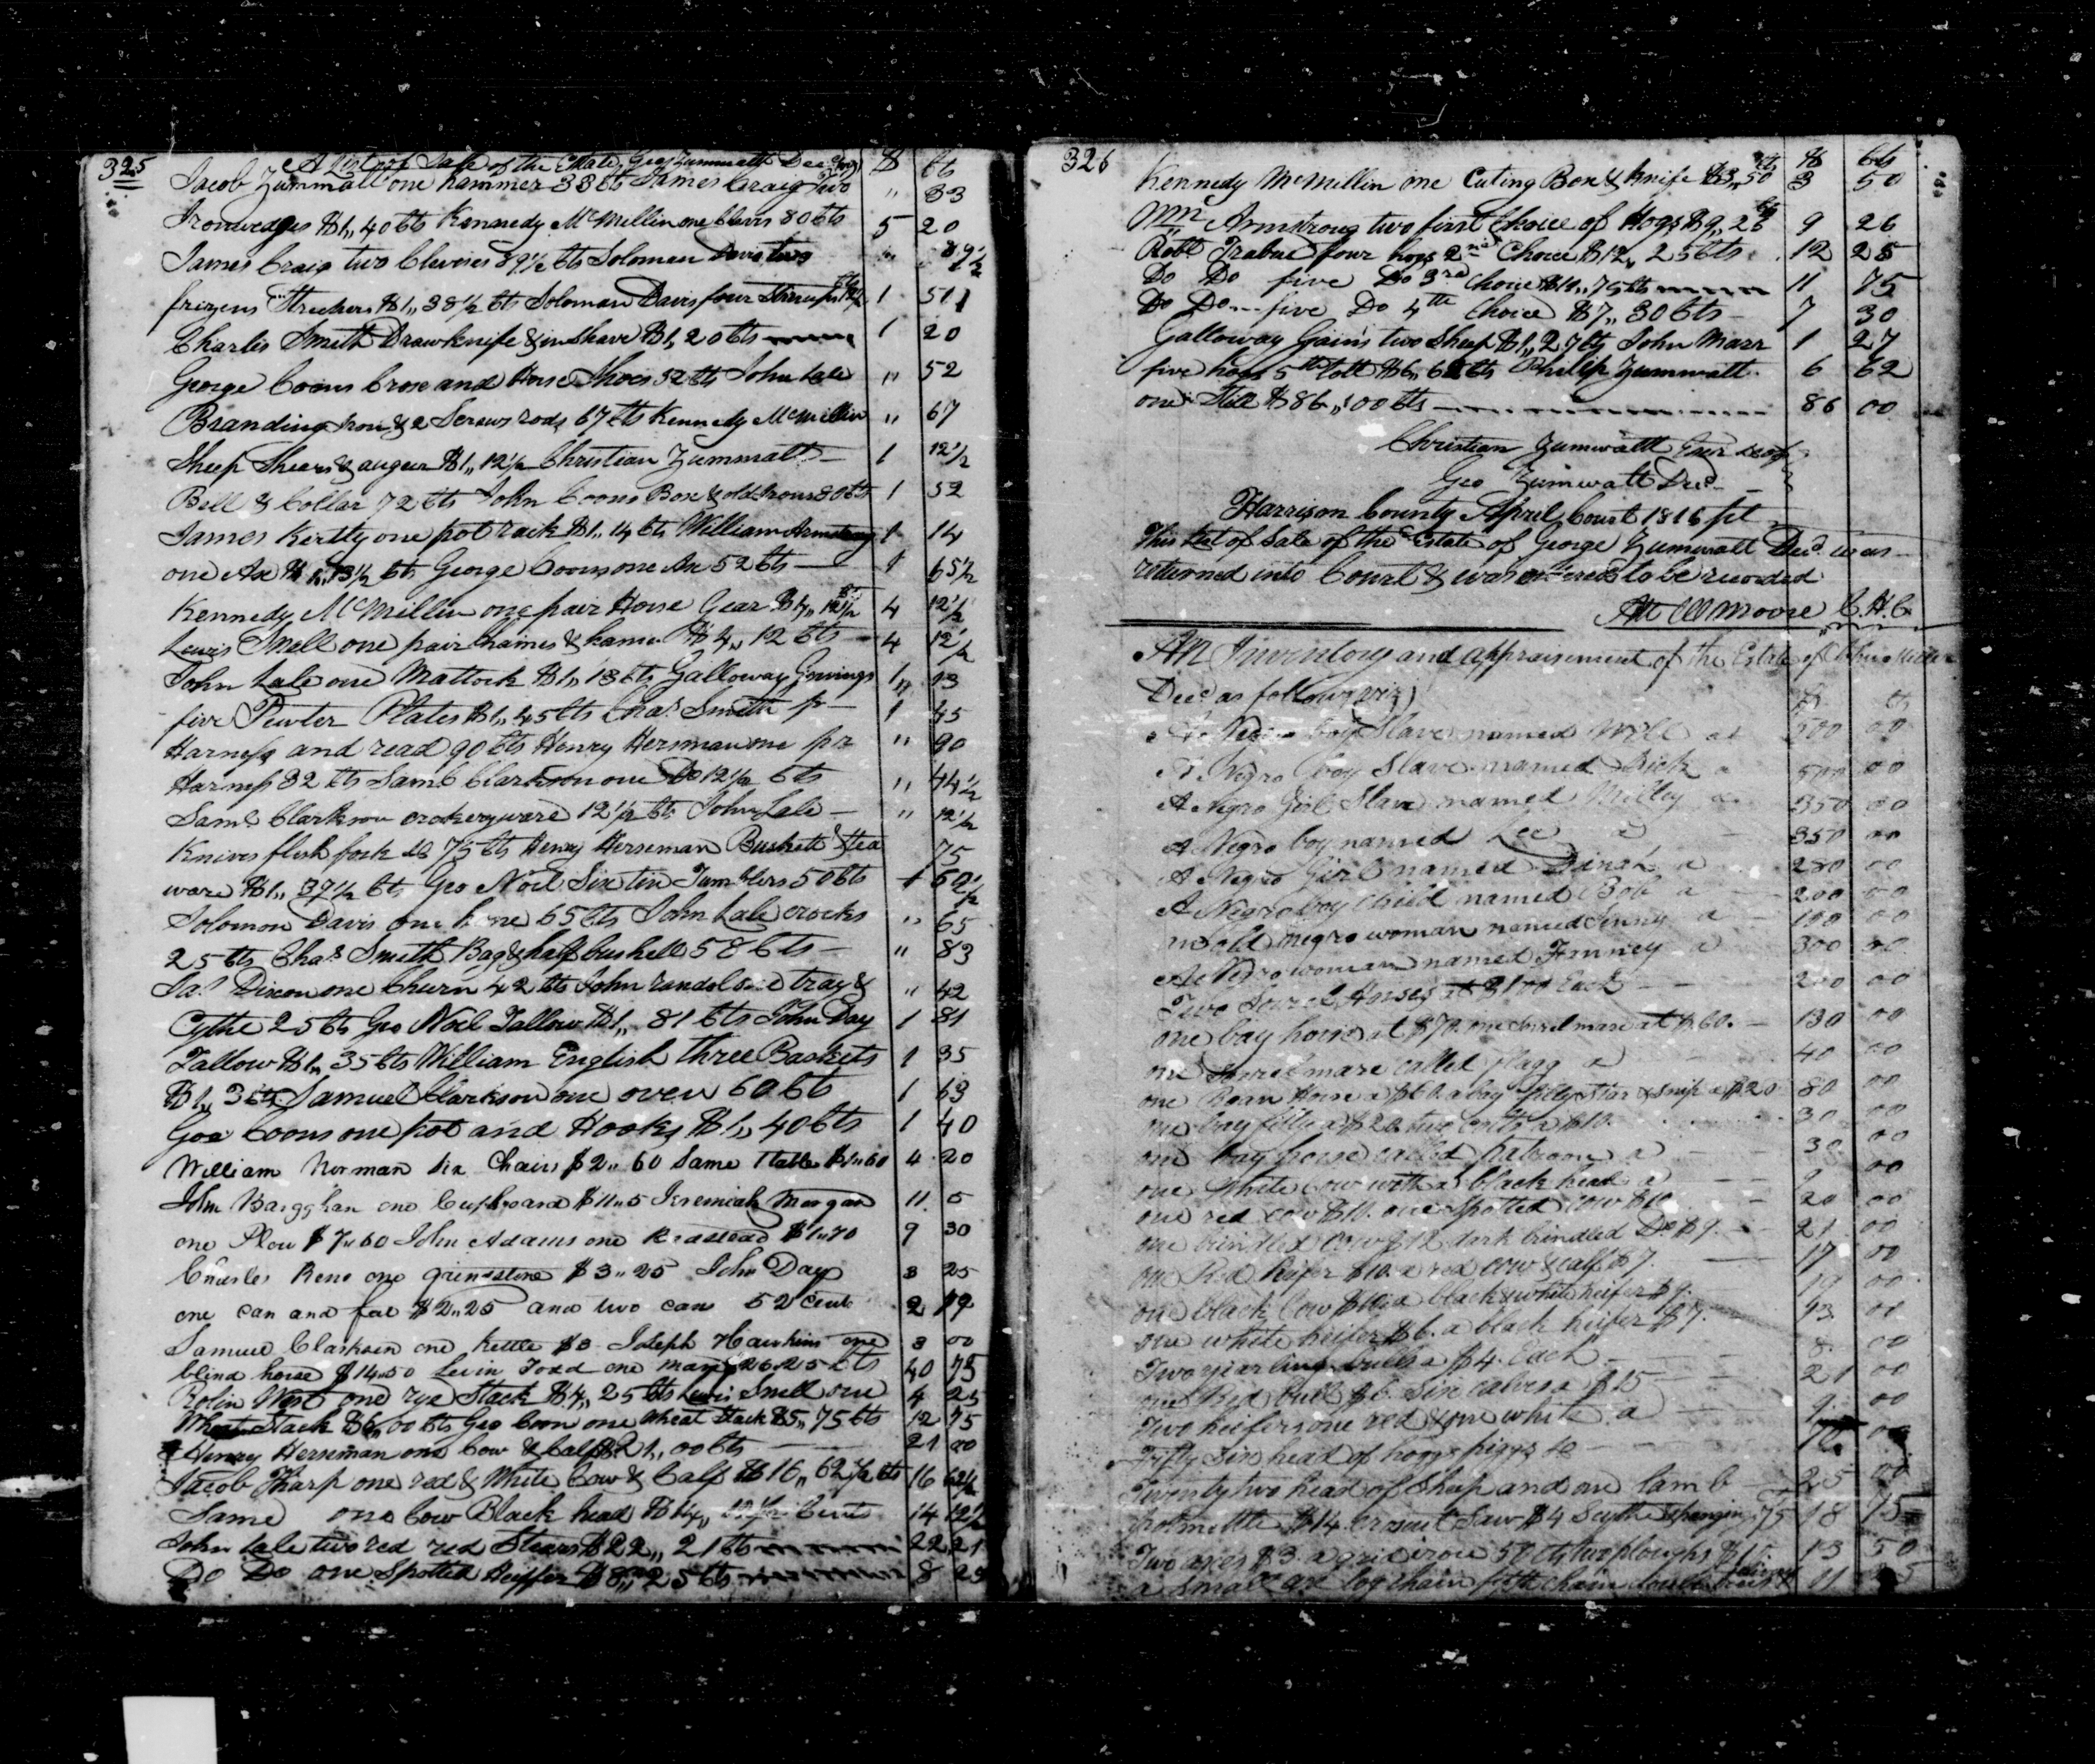 325
A List of Sale of the Estate Geo Zummatt Decd (viz) $ Cts
Jacob Zummalt one hammer 33 Cts James Craig Two " 33
Ironwedges $1,,40 Cts Kennedy McMillin one Clevis 80 Cts 5 20
James Craig two Clevises 89½ Cts Soloman Davis two " 89½
frizens Strechers $1,,38½ Cts Soloman Davis four Stirrups 12½ 1 51
Charles Smith Drawknife & inshave $1,,20 Cts 1 20
George Coons Crose and Horse Shoes 52 Cts John Lale " 52
Branding Iron & 2 Screws rods 67 Cts Kennedy McMillin " 67
Sheep Shears & auger $1,,12½ Christian Zummalt 1 12½
Bell & Collar 72 Cts John Coons Box & old Irons 80 Cts 1 52
James Kertly one pot rack $1,,14 Cts William Armstrong 1 14
one Ax $1,,13½ Cts George Coons one Ax 52 Cts 1 65½
Kennedy McMillin one pair Horse Gear $4,,12½ 4 12½
Lewis Snell one pair Chaines & hames $4,,12 Cts 4 12½
John Lale one Mattock $1,,13 Cts Galloway Gennings 1,, 13
five Pewter Plates $1,,45 Cts Chas Smith pr 1 45
Harness and read 90 Cts Henry Hersman one pr " 90
Harness 32 Cts Saml Clarkson one Do 12½ Cts " 44½
Saml Clarkson crokeryware 12½ Cts John Lale " 12½
Knives flesh fork &c 75 Cts Henry Herseman Buskett & tea 75
ware $1,,37½ Cts Geo Noel Six tin Tumblers 50 Cts 1
Solomon Davis one hone 65 Cts John Lale crocks " 65
25 Cts Chas Smith Bag & half bushell 58 Cts " 83
Ja. Dixon one Churn 42 Cts John Randel one tray & " 42
Cythe 25 Cts Geo Noel Tallow $1,,81 Cts John Day 1 81
Tallow $1,,35 Cts William English three Baskets 1 35
$1,,3 Cts Samuel Clarkson one oven 60 Cts 1 63
Geo Coons one pot and Hooks $1,,40 Cts 1 40
William Norman six Chairs $2,,60 Same 1 table $1,,60 4 20
John Baryghan one Cupboard $11,,5 Jeremiah Morgan 11. 5
one Plow $7,,60 John Adams one $1,,70 9 30
Charles Reno one grindstone $3,,25 John Day 3 25
one can and fat $2,,25 and two cans 52 Cents 2
Samuel Clarkson one Kettle $3 Joseph Hawkins one 3 00
blind horse $14,,50 Levin Todd one mare $26,,25 Cts 40 75
Rolin West one rye Stack $4,,25 Cts Lewis Snell one 4 25
Wheat Stack $6,,00 Cts Geo Coon one Wheat Stack $5,,75 Cts 12 75
Henry Herseman one Cow & Calf $21,,00 Cts 21 00
Jacob Tharp one red & White Cow & Calf $16,,62½ Cts 16 62½
Same one Cow Black head $14,,12½ Cents 14 12½
John Lale two red red Stears $22,,21 Cts 22 21
Do Do one Spotted Heiffer $8,,25 Cts 8 25
326 $ Cts
Kennedy McMillin one Cuting Box & knife $3,,50 Cts 3 50
Wm Armstrong two first Choice of Hogs $9,,26 Cts 9 26
Robt Trabue four hogs 2nd Choice $12,,25 Cts 12 25
Do Do five Do 3rd Choice $11,,75 Cts 11 75
Do Do five Do 4th Choice $7,,30 Cts 7 30
Galloway Gains two Sheep $1,,27 Cts John Marr 1 27
five hogs 5th lott $6,,62 Cts Philip Zummalt 6 62
one Still $86,,00 Cts 86 00
Christian Zumwalt Exor
Geo Zumwalt Decd
Harrison County April Court 1816 Sct
This List of Sale of the Estate of George Zumwalt Decd was
returned into Court & was ordered to be recorded
Att W Moore C.H.C.
An Inventory and appraisement of the Estate of Miller
Decd as follows (viz) $ Cts
A Negro boy Slave named Will at 500 00
A Negro boy Slave named Dick a 500 00
A Negro Girl Slave named Milley a 350 00
A Negro boy named Lee a 350 00
A Negro Girl named Dinah a 280 00
A Negro boy Child named Bob a 200 00
an old negro woman named Jenny a 100 00
A Negro woman named Fanney a 300 00
Two Sorrel Horses at $100 Each 200 00
one bay horse at $70. one Sorrel mare at $60. 130 00
one Sorrel mare called flagg a 40 00
one Roan Horse a $60. a bay filly Star & snip a $20 80 00
one bay filly a $20. two colts a $10. 30 00
one bay horse called a 30. 00
one White Cow with a black head a 00
one red cow $10. one Spotted cow $10. 20 00
one brindled cow $12 dark brindled Do $9. 21 00
one Red heifer $10. a red cow & calf $7. 17 00
one black Cow $10. a black & white heifer $9. 19 00
one white heifer $6. a black heifer $7. 13 00
Two yearling bulls a $4. Each 8. 00
one Red bull $6. Six calves a $15 21 00
Two heifers one red & one white a 9. 00
Fifty Six head of hoggs piggs &c 70. 00
Twenty two head of Sheep and one lamb 25 00
$14. Croscut Saw $4 Scythe & hanging .75 18 75
Two axes $3. a gridiron 50 cts two ploughs $10. 13 50
a Small ax log chain fifth chain double trees 11